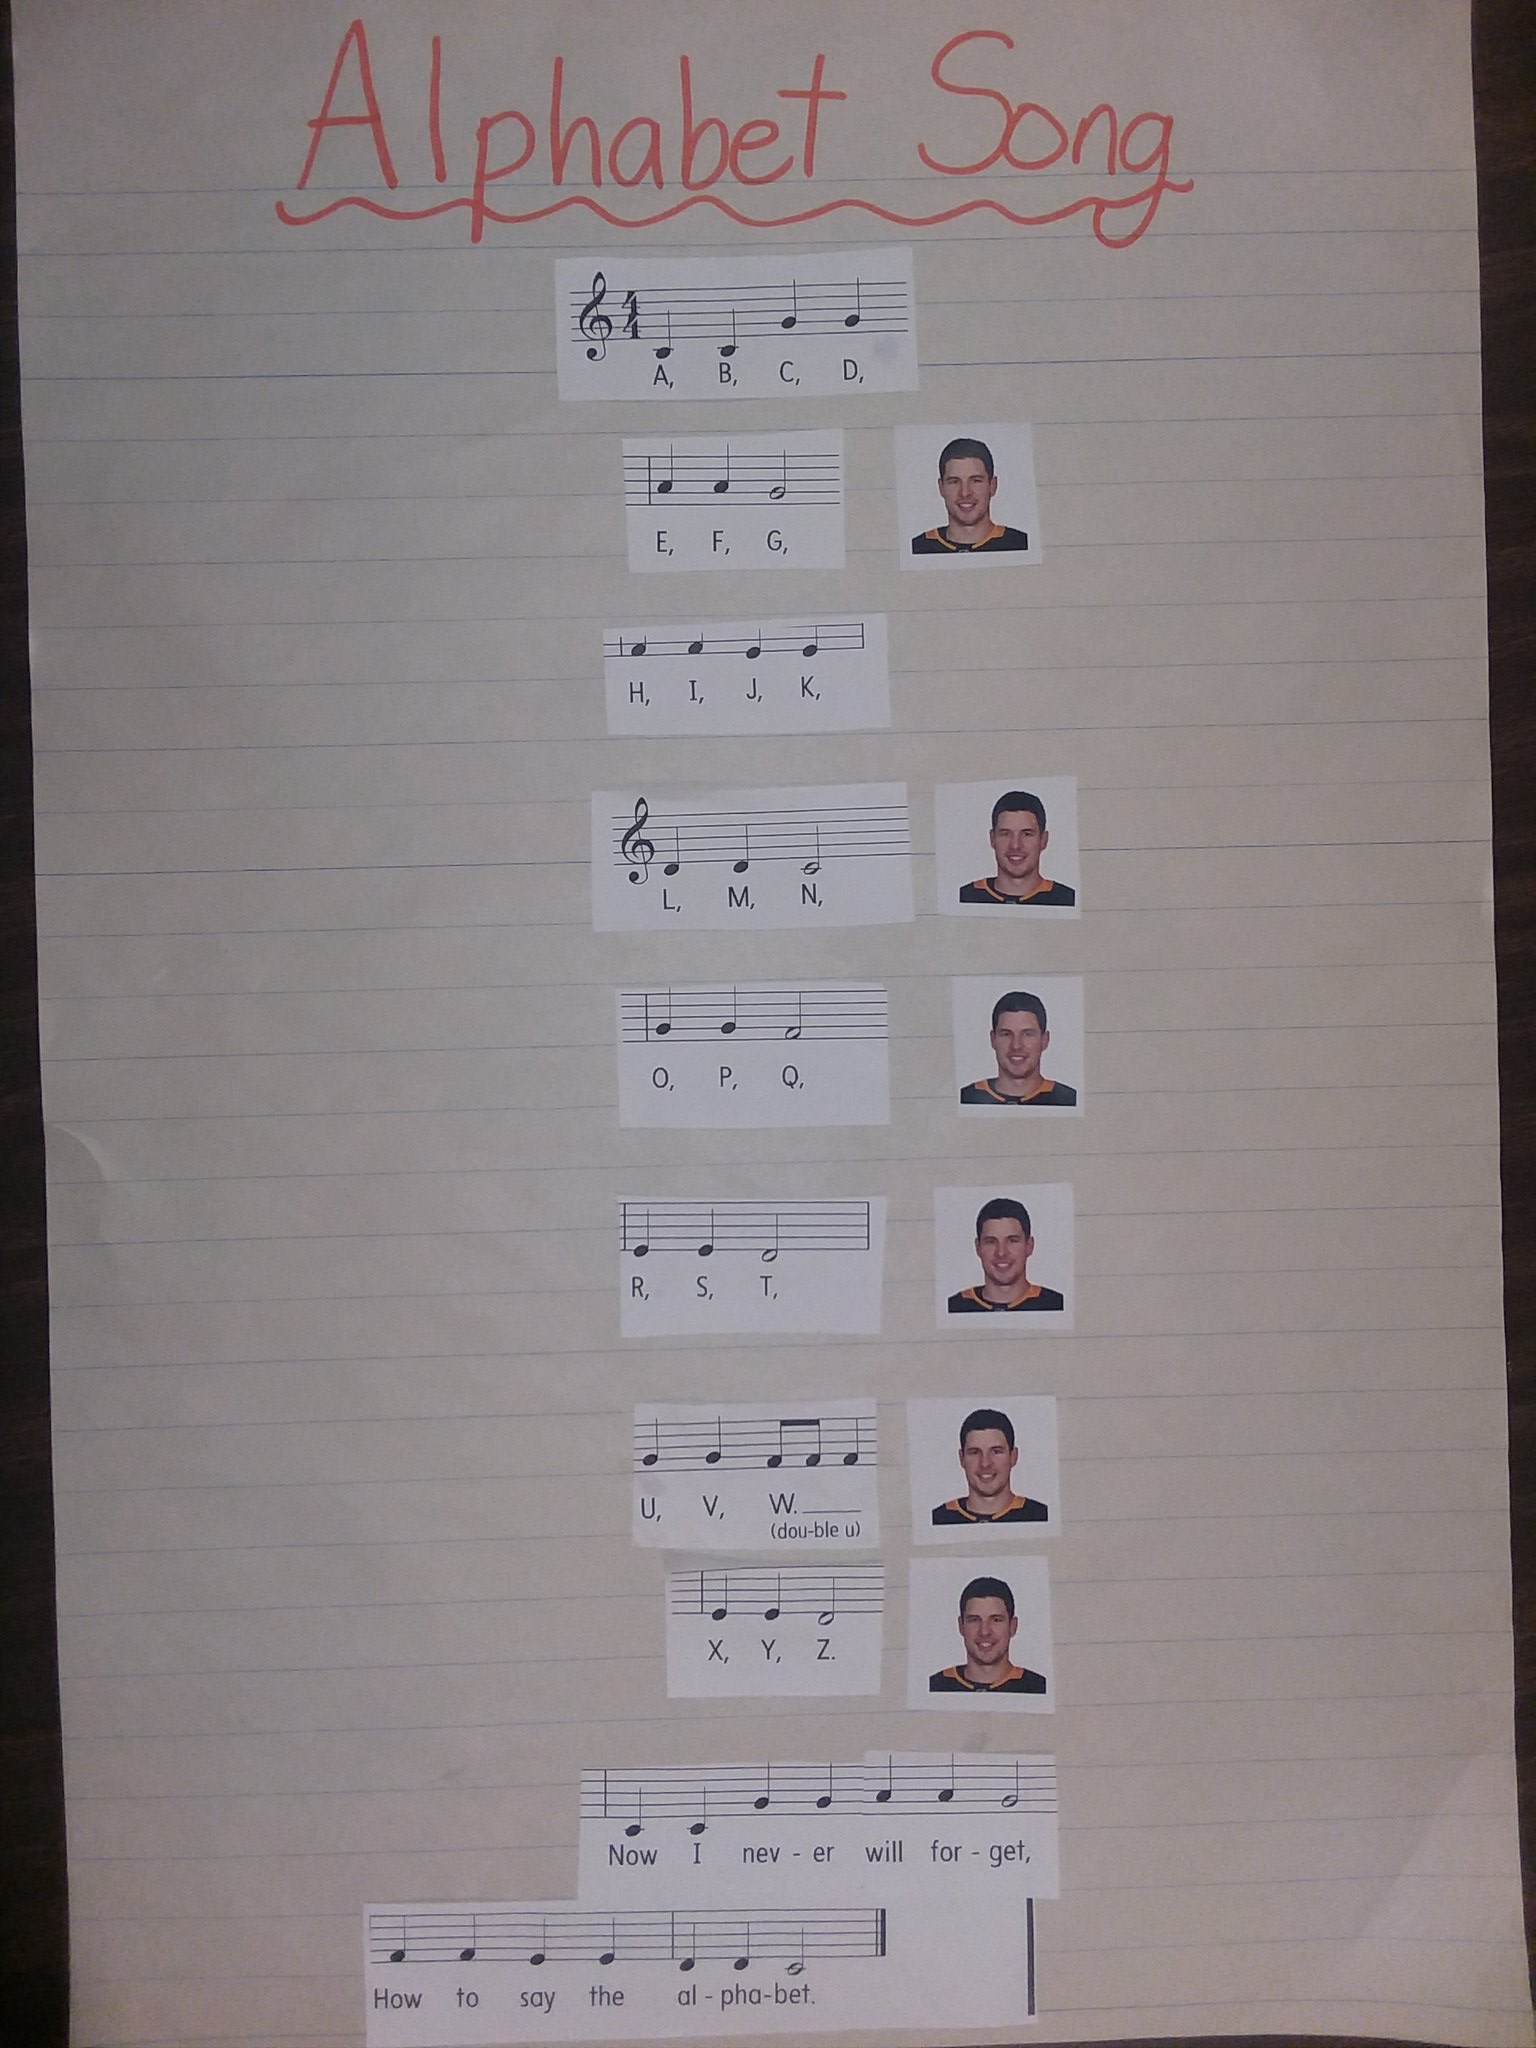 Alphabet Song
4
4
A, B, C, D,
E, F, G,
H, I, J, K,
L, M, N,
O, P, Q,
R, S, T,
U, V, W.____
(dou-ble u)
X, Y, Z.
Now I nev - er will for - get,
How to say the al - pha-bet.